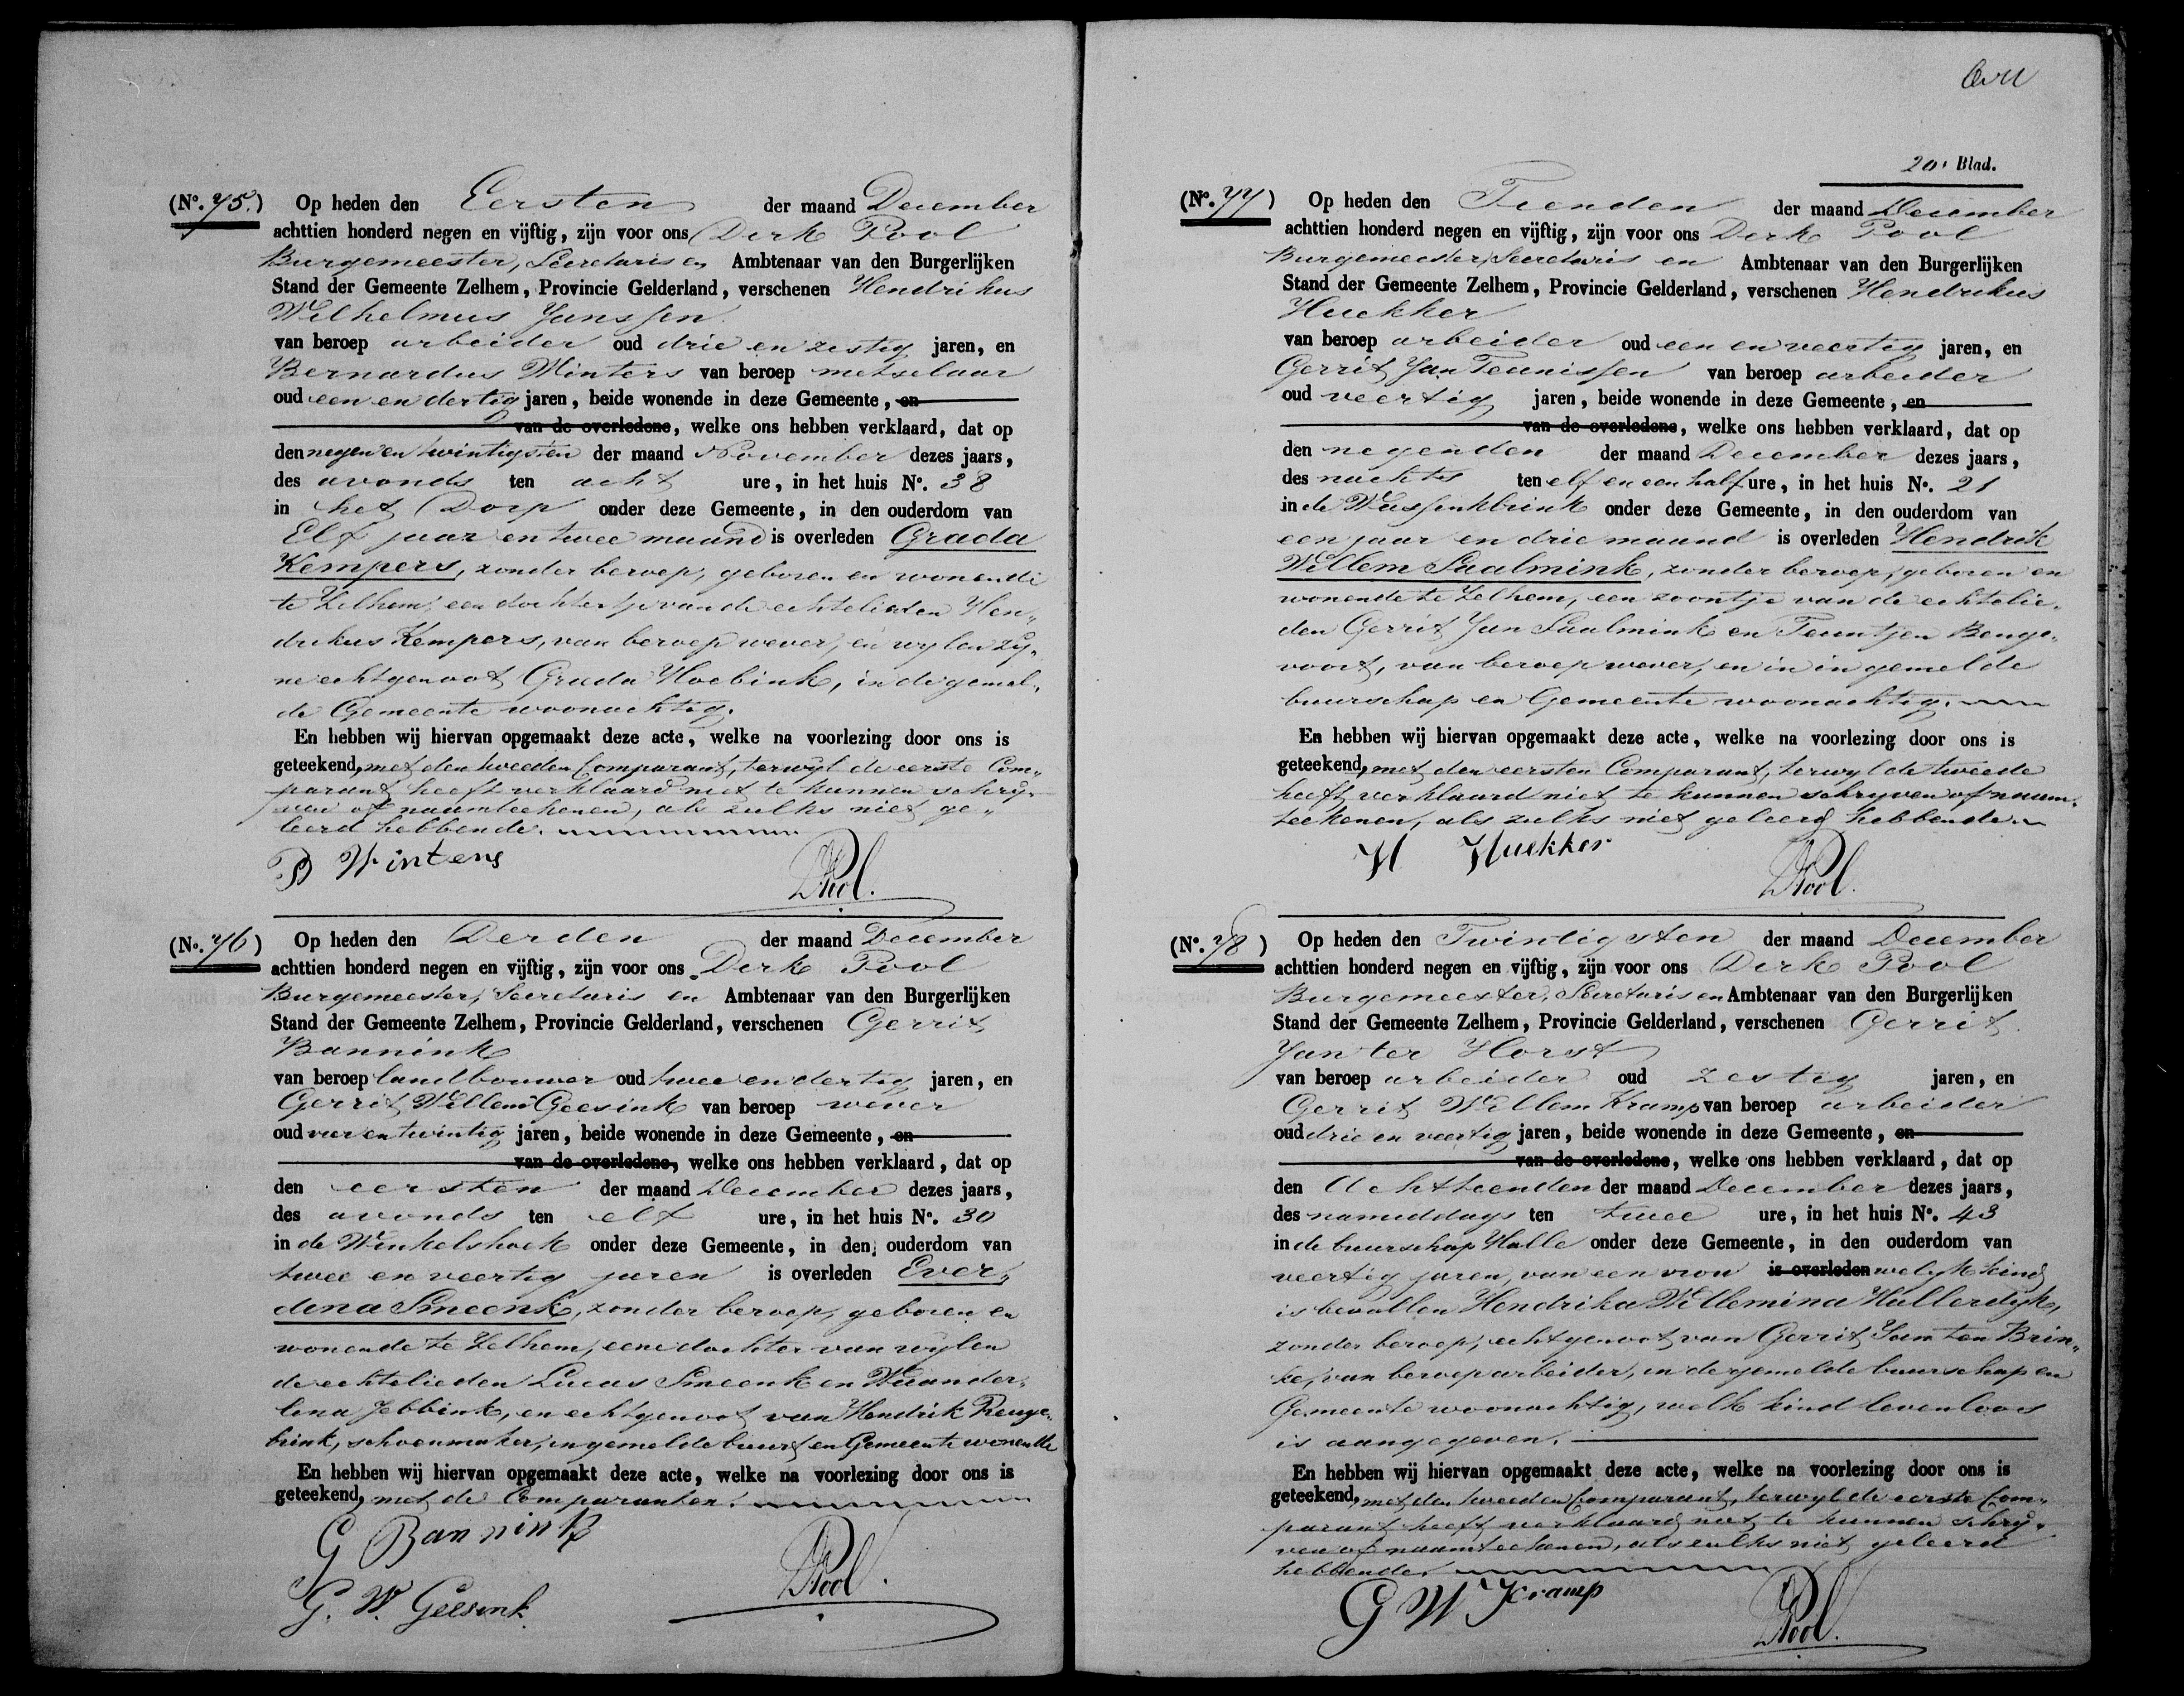 (No. 75.) Op heden den Eersten der maand December
achttien honderd negen en vijftig, zijn voor ons Derk Pool
Burgemeester, Secretaris en Ambtenaar van den Burgerlijken
Stand der Gemeente Zelhem, Provincie Gelderland, verschenen Hendrikus
Wilhelmus Janssen
van beroep arbeider oud drie en zestig jaren, en
Bernardus Winters van beroep metselaar
oud een en dertig jaren, beide wonende in deze Gemeente, en
van de overledene, welke ons hebben verklaard, dat op
den negen en twintigsten der maand November dezes jaars,
des avonds ten acht ure, in het huis No. 38
in het Dorp onder deze Gemeente, in den ouderdom van
Elf jaar en twee maand is overleden Grada
Kempers, zonder beroep, geboren en wonende
te Zelhem, een dochtertje van de echtelieden Hen„
drikus Kempers, van beroep wever, en wylen zy„
ne echtgenoot Grada Hoebink, in de gemel„
de Gemeente woonachtig.
En hebben wij hiervan opgemaakt deze acte, welke na voorlezing door ons is
geteekend, met den tweeden Comparant, terwyl de eerste Com„
parant heeft verklaard niet te kunnen schry„
ven of naamteekenen, als zulks niet ge„
leerd hebbende.
B Winters
DPool.
(No. 76) Op heden den Derden der maand December
achttien honderd negen en vijftig, zijn voor ons Derk Pool
Burgemeester, Secretaris en Ambtenaar van den Burgerlijken
Stand der Gemeente Zelhem, Provincie Gelderland, verschenen Gerrit
Bannink
van beroep landbouwer oud twee en dertig jaren, en
Gerrit Willem Geesink van beroep wever
oud vier en twintig jaren, beide wonende in deze Gemeente, en
van de overledene, welke ons hebben verklaard, dat op
den eersten der maand December dezes jaars,
des avonds ten elf ure, in het huis No. 30
in de Winkelshoek onder deze Gemeente, in den ouderdom van
twee en veertig jaren is overleden Ever„
dena Smeenk, zonder beroep, geboren en
wonende te Zelhem, eene dochter van wylen
de echtelieden Lucas Smeenk en Wander„
lena Jebbink, en echtgenoot van Hendrik Renge„
brink, schoenmaker, in gemelde buurt en Gemeente wonende
En hebben wij hiervan opgemaakt deze acte, welke na voorlezing door ons is
geteekend, met de Comparanten.
G Bannink
DPool.
G. W. Geesink.
20e Blad.
(No. 77) Op heden den Tienden der maand December
achttien honderd negen en vijftig, zijn voor ons Derk Pool
Burgemeester, Secretaris en Ambtenaar van den Burgerlijken
Stand der Gemeente Zelhem, Provincie Gelderland, verschenen Hendrikus
Huekker
van beroep arbeider oud een en veertig jaren, en
Gerrit Jan Teunissen van beroep arbeider
oud veertig jaren, beide wonende in deze Gemeente, en
van de overledene, welke ons hebben verklaard, dat op
den negenden der maand December dezes jaars,
des nachts ten elf en een half ure, in het huis No. 21
in de Wassenkbrink onder deze Gemeente, in den ouderdom van
een jaar en drie maand is overleden Hendrik
Willem Saalmink, zonder beroep, geboren en
wonende te Zelhem, een zoontje van de echtelie„
den Gerrit Jan Saalmink en Teuntjen Benge„
voort, van beroep wever, en in in gemelde
buurschap en Gemeente woonachtig.
En hebben wij hiervan opgemaakt deze acte, welke na voorlezing door ons is
geteekend, met den eersten Comparant, terwyl de tweede
heeft verklaard niet te kunnen schryven of naam„
teekenen, als zulks niet geleerd hebbende
H Huekker
DPool.
(No. 78) Op heden den Twintigsten der maand December
achttien honderd negen en vijftig, zijn voor ons Derk Pool
Burgemeester, Secretaris en Ambtenaar van den Burgerlijken
Stand der Gemeente Zelhem, Provincie Gelderland, verschenen Gerrit
Jan ter Horst
van beroep arbeider oud zestig jaren, en
Gerrit Willem Kramp van beroep arbeider
oud drie en veertig jaren, beide wonende in deze Gemeente, en
van de overledene, welke ons hebben verklaard, dat op
den Achttienden der maand December dezes jaars,
des namiddags ten twee ure, in het huis No. 43
in de buurschap Halle onder deze Gemeente, in den ouderdom van
veertig jaren, van een vrou is overleden welyk kind
is bevallen Hendrika Willemina Hallerdyk,
zonder beroep, echtgenoot van Gerrit Jan ten Brin„
ke, van beroep arbeider, in de gemelde buurschap en
Gemeente woonachtig, welk kind levenloos
is aangegeven.
En hebben wij hiervan opgemaakt deze acte, welke na voorlezing door ons is
geteekend, met den tweeden Comparant, terwyl de eerste Com„
parant heeft verklaard niet te kunnen schry„
ven of naamteekenen, als zulks niet geleerd
hebbende.
G W Kramp
DPool.